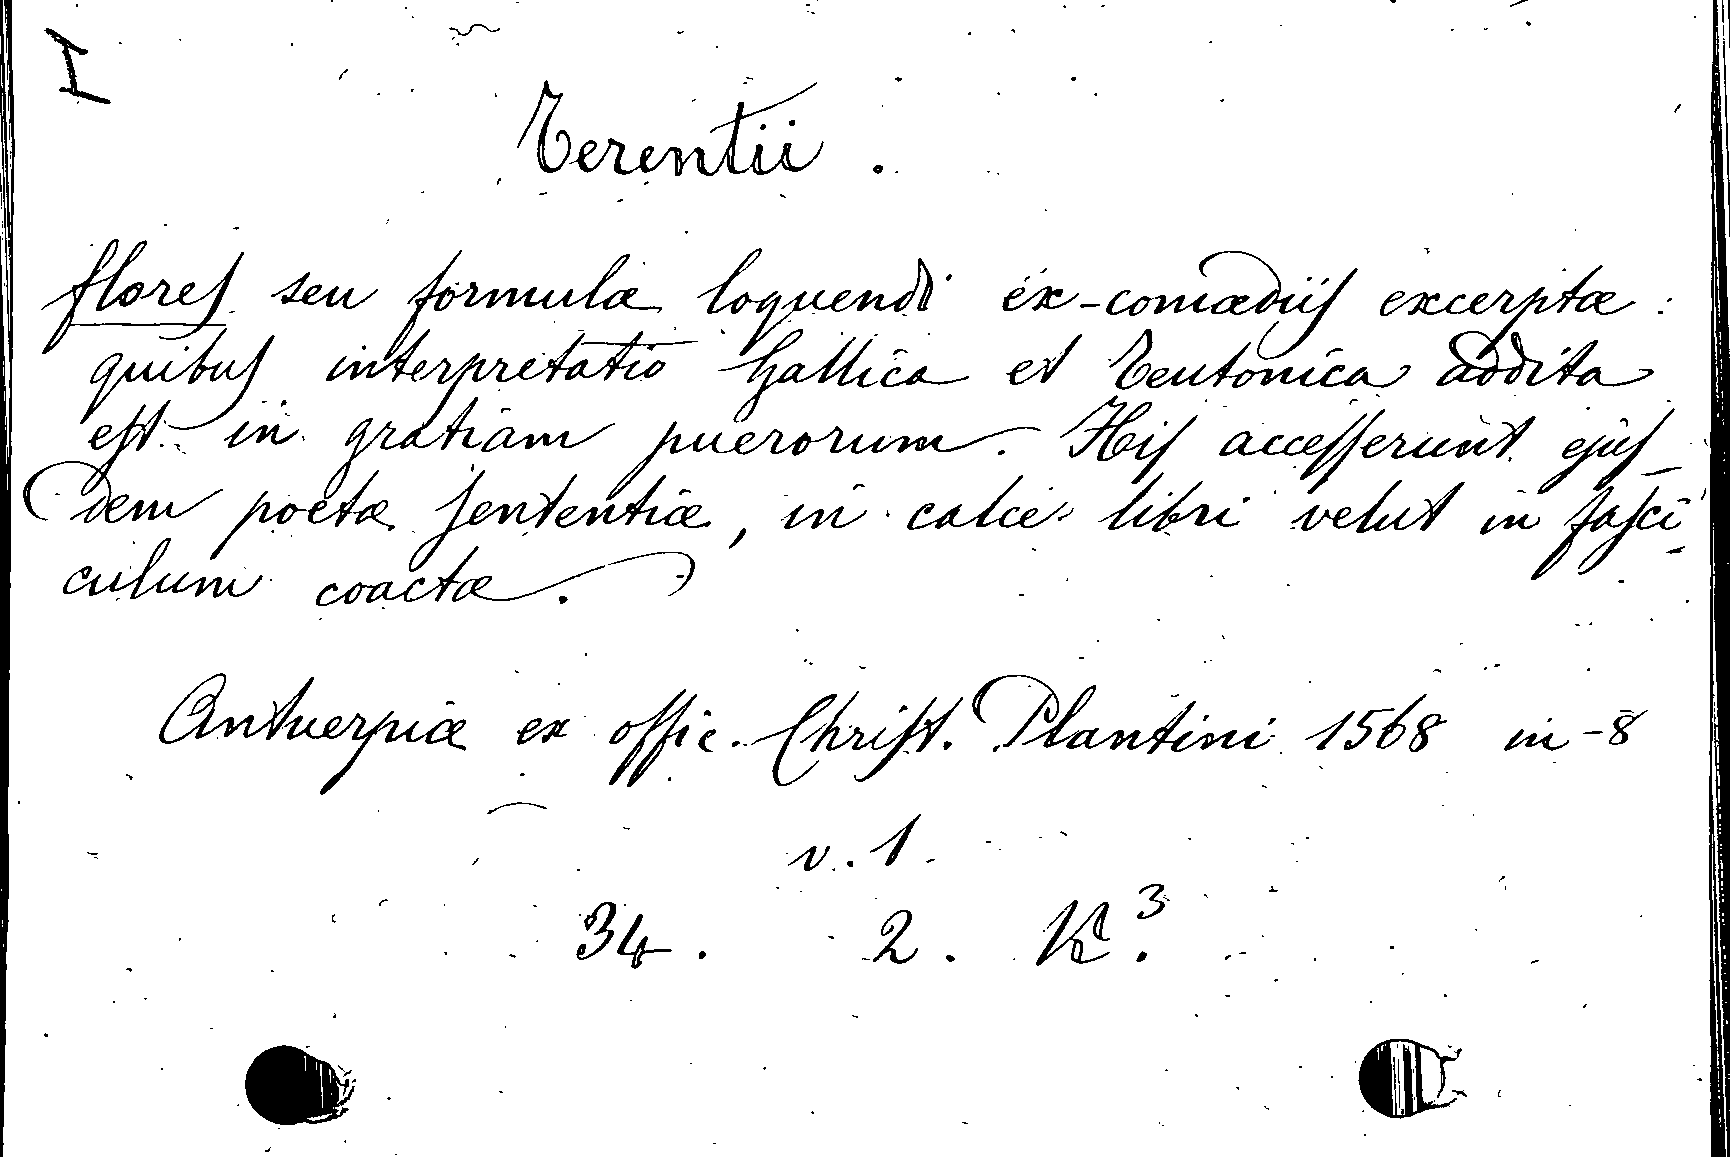 I
Terentii.
flores seu formulæ loquendi ex comœdiis excerptæ:
quibus interpretatio Gallica et Teutonica addita
est in gratiam puerorum. His accesserunt ejus-
dem poetæ sententiæ, in calce libri velut in fasci-
culum coactæ.
Antuerpiæ ex offic. Christ. Plantini 1568 in-8
v. 1.
34. 2. K³.